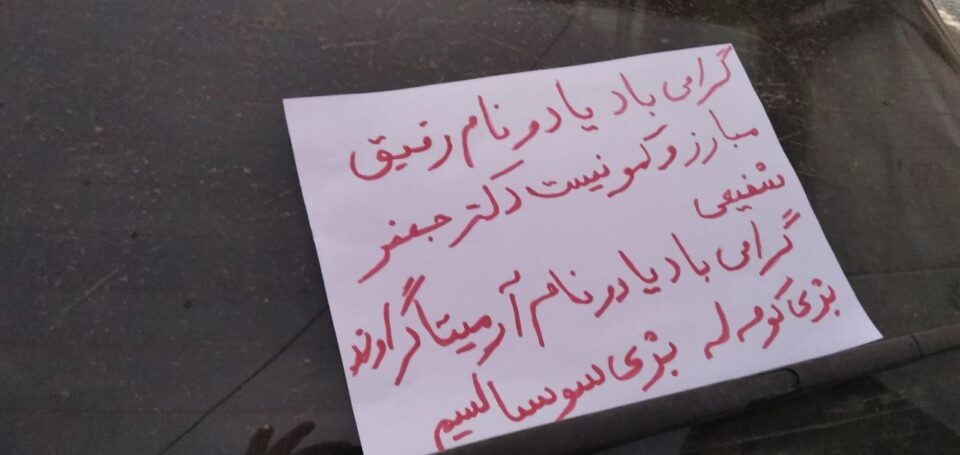 گرامی باد یاد و نام رفیق
مبارز و کمونیست دکتر جعفر
شفیعی
گرامی باد یاد و نام آرمیتا گراوند
بژی کومه له بژی سوسیالسیم